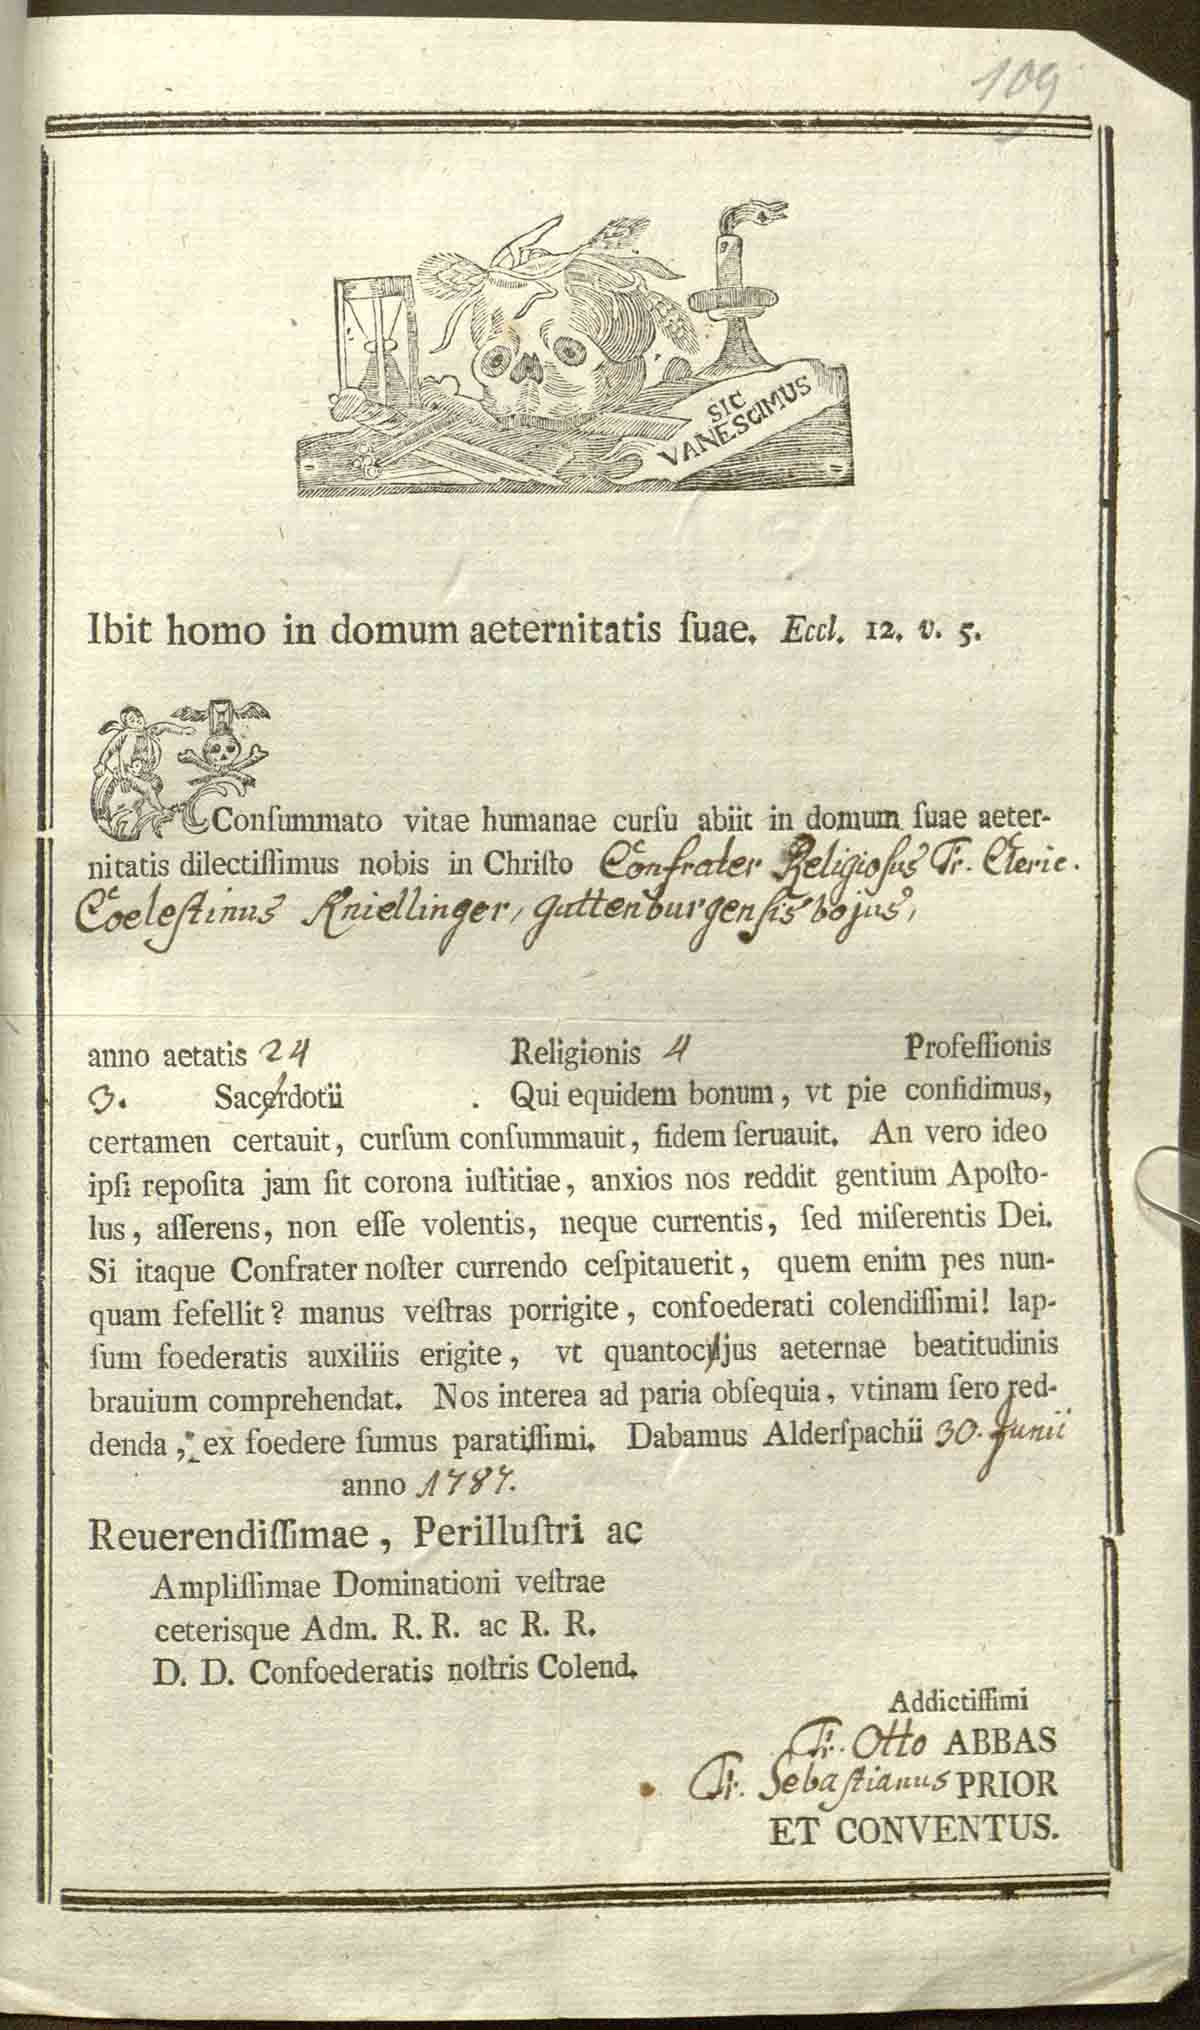 109
SIC
VANESCIMUS
Ibit homo in domum aeternitatis ſuae. Eccl. 12. v. 5.
Conſummato vitae humanae curſu abiit in domum ſuae aeter-
nitatis dilectiſſimus nobis in Chriſto Confrater Religiosus Fr. Cleric.
Coelestinus Kniellinger, guttenburgensis bojus,
anno aetatis 24 Religionis 4 Profeſſionis
3. Sacerdotii . Qui equidem bonum, vt pie confidimus,
certamen certauit, curſum conſummauit, fidem ſeruauit. An vero ideo
ipſi repoſita jam ſit corona iuſtitiae, anxios nos reddit gentium Apoſto-
lus, aſſerens, non eſſe volentis, neque currentis, ſed miſerentis Dei.
Si itaque Confrater noſter currendo ceſpitauerit, quem enim pes nun-
quam fefellit? manus veſtras porrigite, confoederati colendiſſimi! lap-
ſum foederatis auxiliis erigite, vt quantocyjus aeternae beatitudinis
brauium comprehendat. Nos interea ad paria obſequia, vtinam ſero red-
denda, ex foedere ſumus paratiſſimi. Dabamus Alderſpachii 30. Junii
anno 1787.
Reuerendiſſimae, Perilluſtri ac
Ampliſſimae Dominationi veſtrae
ceterisque Adm. R. R. ac R. R.
D. D. Confoederatis noſtris Colend.
Addictiſſimi
Fr. Otto ABBAS
Fr. Sebastianus PRIOR
ET CONVENTUS.